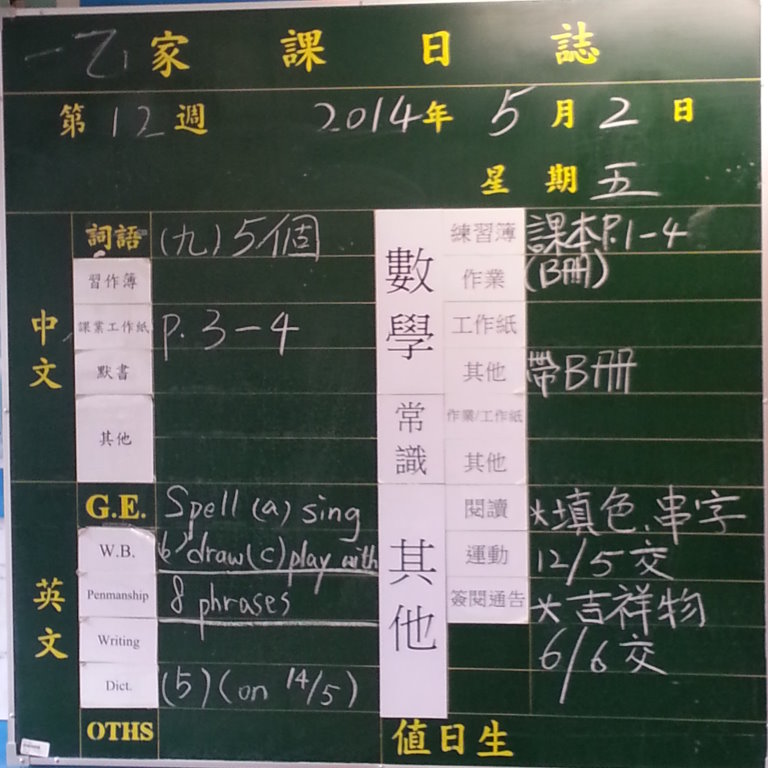 一乙 家課日誌
第12週 2014年5月2日
星期五
中文
詞語 (九)5個
習作簿
課業工作紙 P.3-4
默書
其他
英文
G.E. Spell (a) sing
W.B. b) draw (c) play with
Penmanship 8 phrases
Writing
Dict. (5) (on 14/5)
OTHS
數學
練習簿 課本P.1-4
作業 (B冊)
工作紙
其他 帶B冊
常識
作業/工作紙
其他
其他
閱讀 *填色、串字
運動 12/5 交
簽閱通告 *吉祥物
6/6 交
值日生